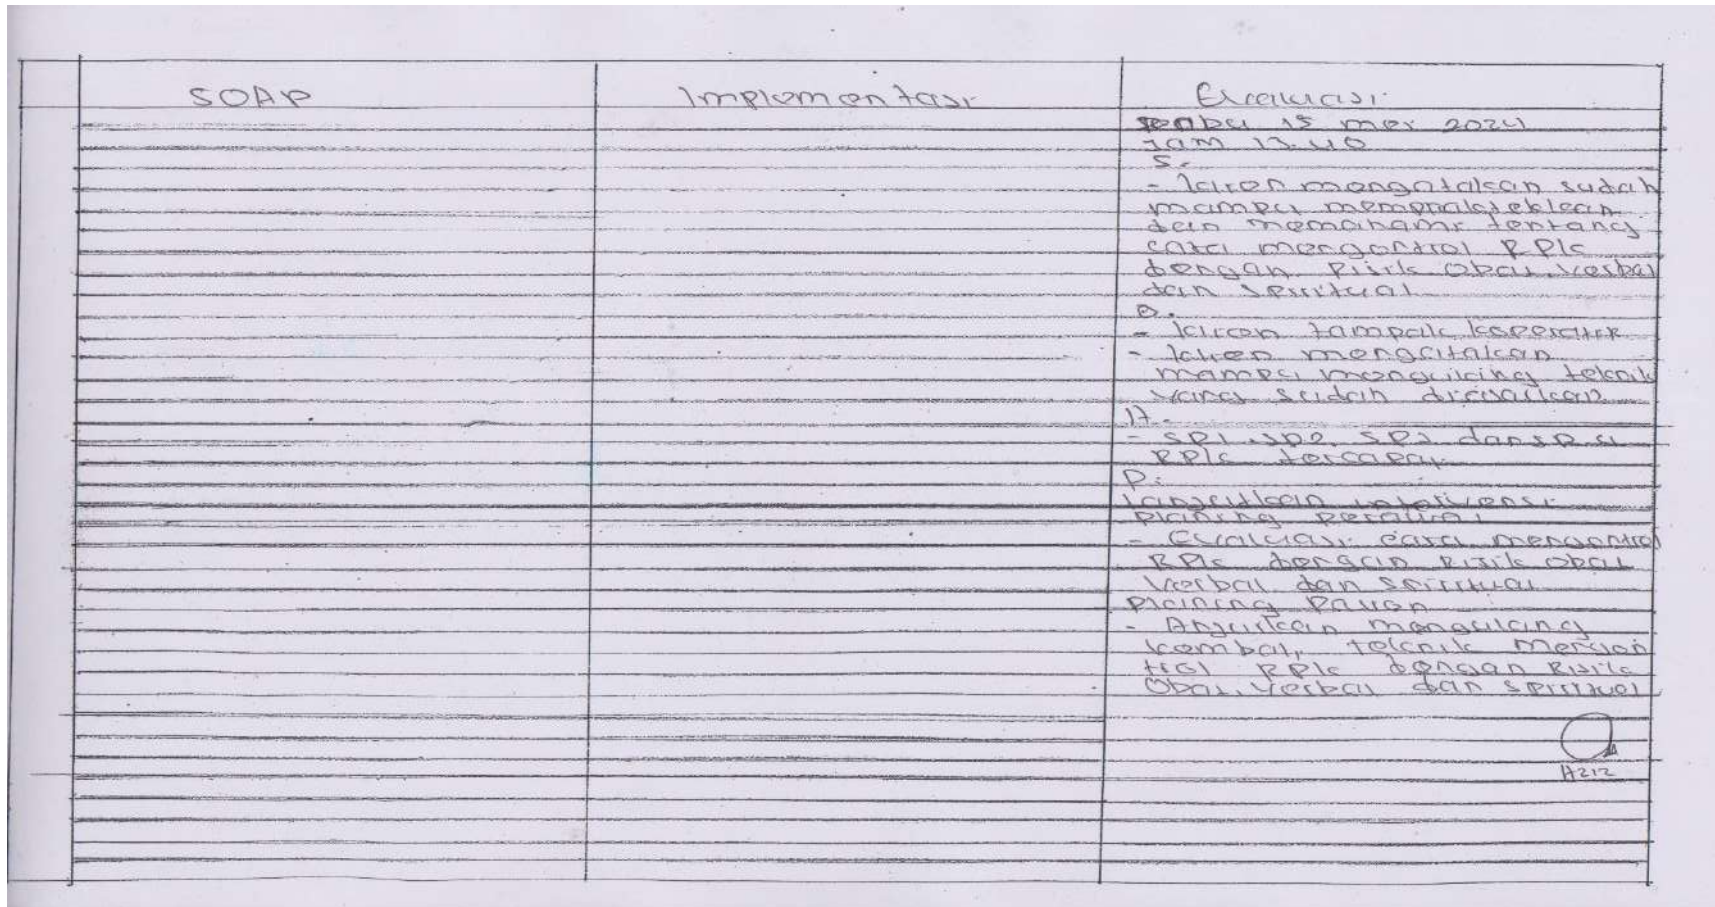 SOAP
Implementasi
Evaluasi
15 mei 2024
Jam 13.40
S.
- klien mengatakan sudah
mampu mempraktekkan
dan memahami tentang
cara mengontrol RPK
dengan Fisik Obat, verbal
dan Spiritual
O.
- klien tampak koperatif
- klien mengatakan
mampu mengulang teknik
yang sudah diajarkan
A.
- SP1, SP2, SP3 dan SP4
RPK tercapai
P.
Lanjutkan intervensi
Planing perawat
- Evaluasi cara mengontrol
RPK dengan Fisik Obat
Verbal dan Spiritual
Planing Pasien
- Anjurkan mengulang
kembali, teknik mengon
trol RPK dengan Fisik
Obat, Verbal dan Spiritual